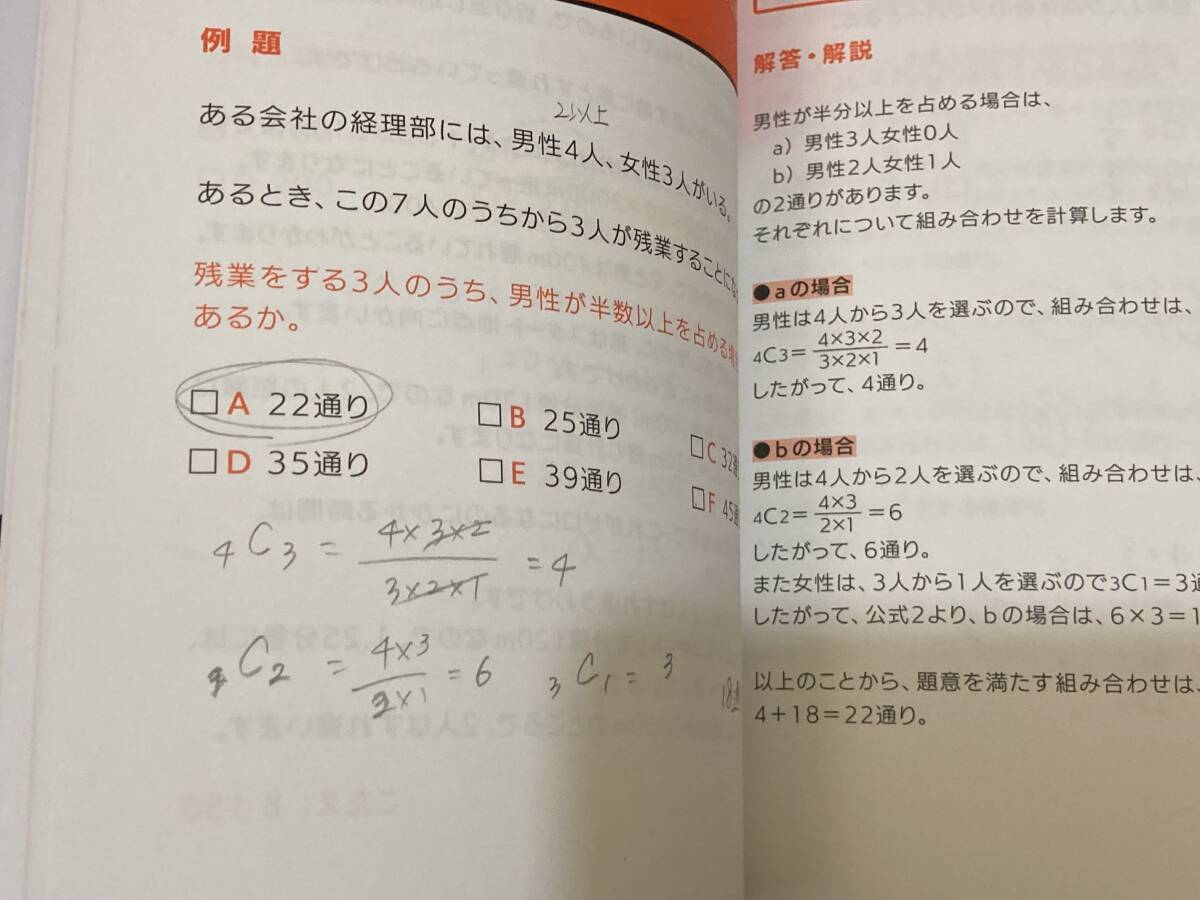 例 題
2以上
ある会社の経理部には、男性4人、女性3人がいる。
あるとき、この7人のうちから3人が残業することにな
残業をする3人のうち、男性が半数以上を占める場
あるか。
□A 22通り
□B 25通り
□C 32通
□D 35通り
□E 39通り
□F 45通
4C3 = 4×3×2/3×2×1 = 4
C2 = 4×3/2×1 = 6
3C1 = 3
解答・解説
男性が半分以上を占める場合は、
a）男性3人女性0人
b）男性2人女性1人
の2通りがあります。
それぞれについて組み合わせを計算します。
●aの場合
男性は4人から3人を選ぶので、組み合わせは、
4C3＝4×3×2/3×2×1＝4
したがって、4通り。
●bの場合
男性は4人から2人を選ぶので、組み合わせは、
4C2＝4×3/2×1＝6
したがって、6通り。
また女性は、3人から1人を選ぶので3C1＝3通
したがって、公式2より、bの場合は、6×3＝1
以上のことから、題意を満たす組み合わせは、
4＋18＝22通り。